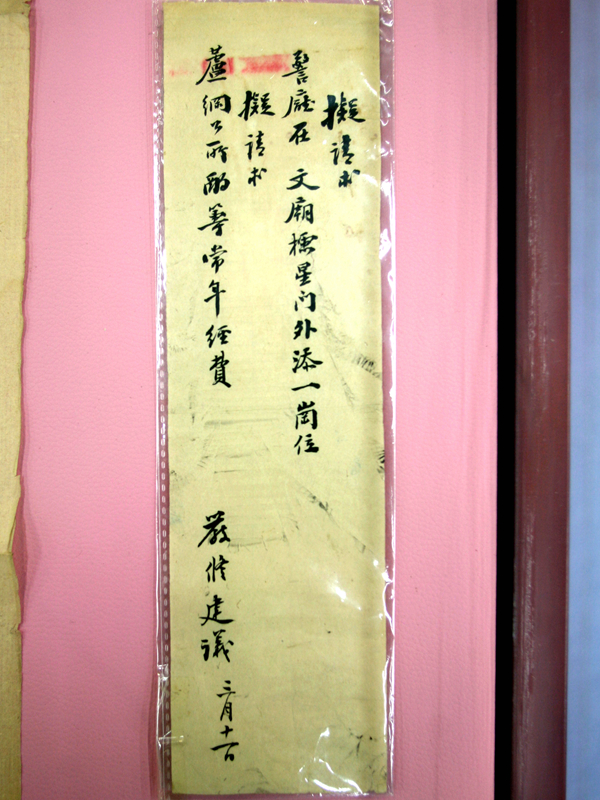 擬請求
警廳在 文廟櫺星门外添一崗位
擬請求
蘆綱公所酌籌常年經費
嚴修建議 三月十一日